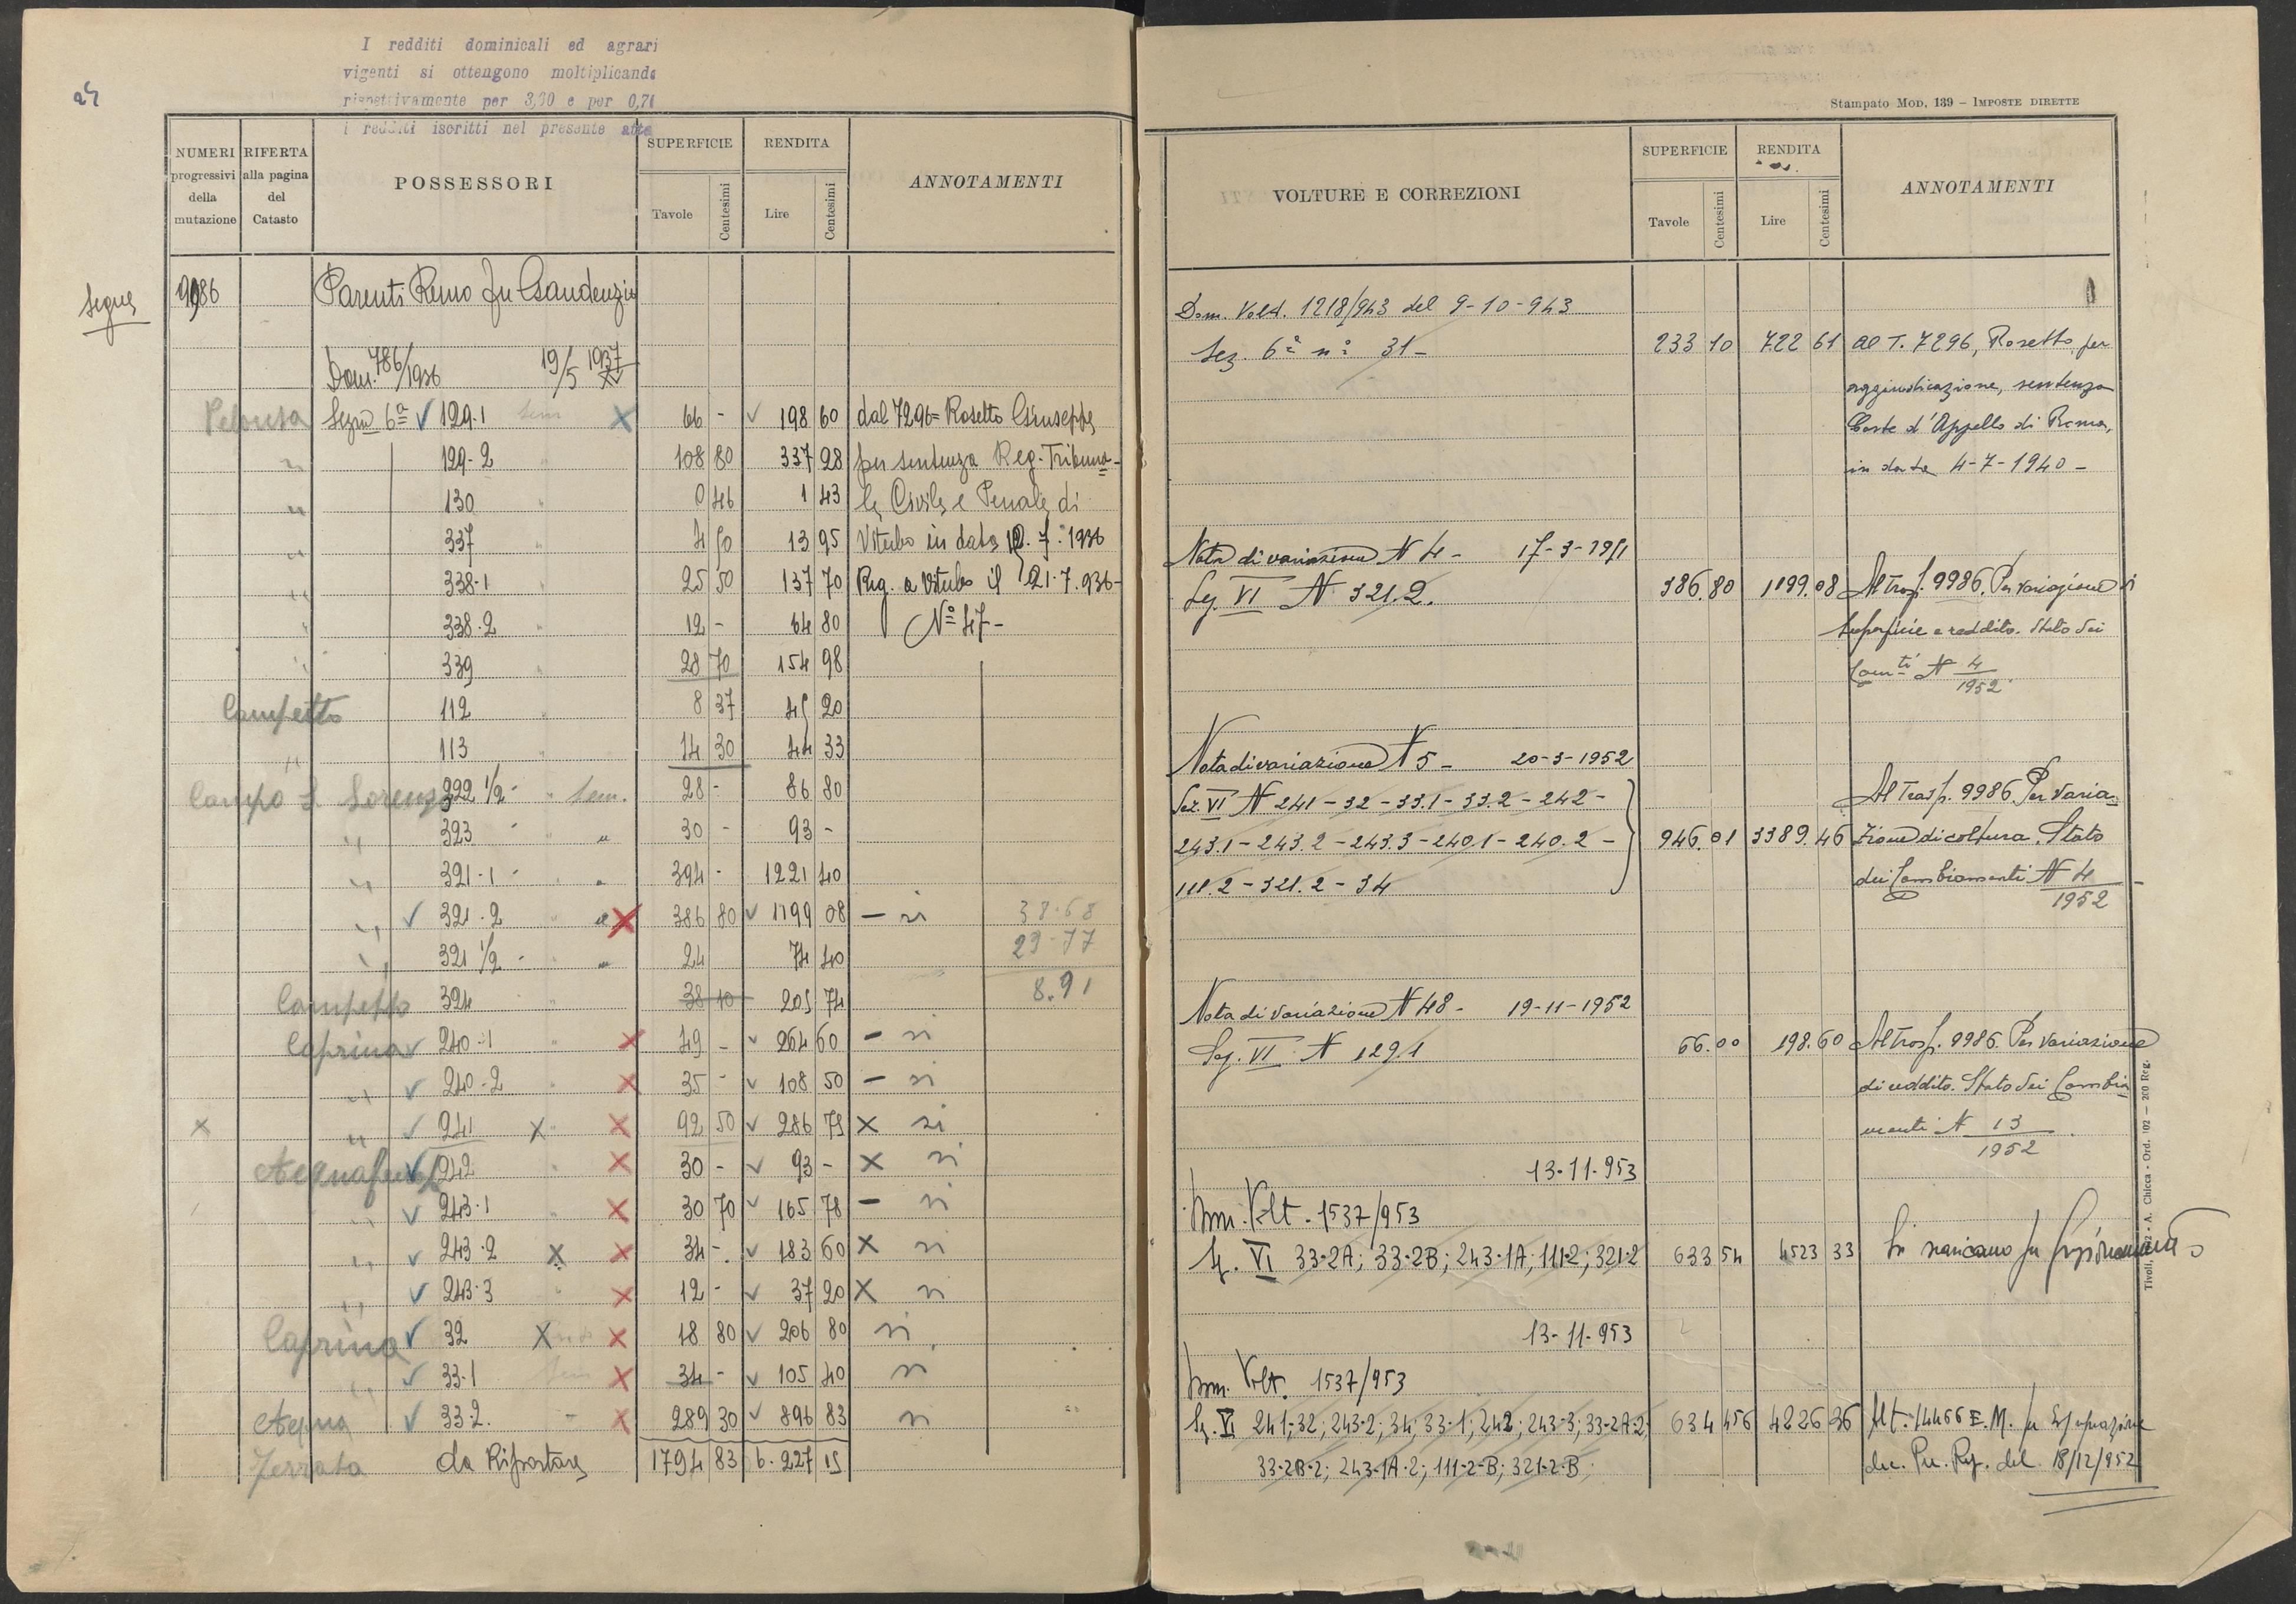 I redditi dominicali ed agrari
vigenti si ottengono moltiplicando
rispettivamente per 3,00 e per 0,71
i redditi iscritti nel presente atto
NUMERI progressivi della mutazione
RIFERTA alla pagina del Catasto
POSSESSORI
SUPERFICIE Tavole Centesimi
RENDITA Lire Centesimi
ANNOTAMENTI
Segue 9986 Parenti Remo fu Gaudenzio
Dom. 786/1936 19/5 1937 XV
Sezne 6a ✓ 129-1 Sem X 66 - ✓ 198 60 dal 7296 = Rosetto Giuseppe
" 129-2 " 108 80 337 28 per sentenza Reg. Tribuna-
" 130 " 0 46 1 43 le Civile e Penale di
" 337 " 4 50 13 95 Viterbo in data 12.7.1936
" 338-1 " 25 50 137 70 Reg. a Viterbo il 21.7.936-
" 338-2 " 12 - 64 80 No 47-
" 339 " 28 70 154 98
Campetto 112 " 8 37 45 20
" 113 " 14 30 44 33
Campo S. Lorenzo 322 1/2 - " Sem. 28 - 86 80
" 323 " " 30 - 93 -
" 321-1 - " " 394 - 1221 40
" ✓ 321-2 " " X 386 80 ✓ 1199 08 - si 38-68
" 321 1/2 - " " 24 74 40 29-77
Campetto 324 " 38 10 205 74 8.91
Caprina ✓ 240-1 " X 49 - ✓ 264 60 - si
" ✓ 240-2 " X 35 - ✓ 108 50 - si
X " ✓ 241 X " X 92 50 ✓ 286 75 X si
✓ 242 " X 30 - ✓ 93 - X si
" ✓ 243-1 " X 30 70 ✓ 165 78 - si
" ✓ 243-2 X X 34 - ✓ 183 60 X si
" ✓ 243-3 " X 12 - ✓ 37 20 X si
Caprina ✓ 32 X X 48 80 ✓ 206 80 si
" ✓ 33-1 Sem X 34 - ✓ 105 40 si
Acqua ✓ 33-2. - X 289 30 ✓ 896 83 si
Ferrata da Riportare 1794 83 6.227 15
Stampato MOD. 139 – IMPOSTE DIRETTE
VOLTURE E CORREZIONI
SUPERFICIE Tavole Centesimi
RENDITA Lire Centesimi
ANNOTAMENTI
Dom. Volt. 1218/943 del 9-10-943
Sez. 6a no 31- 233 10 722 61 al T. 7296, Rosetto, per
aggiudicazione, sentenza
Corte d'Appello di Roma,
in data 4-7-1940 -
Nota di variazione N 4 - 17-3-1951
Sez. VI N 321.2. 386.80 1199.08 Al Trasf. 9986. Per variazione di
superficie e reddito. Stato dei
Camti N 4/1952
Nota di variazione N 5 - 20-3-1952
Sez. VI N 241 - 32 - 33.1 - 33.2 - 242 - Al Trasf. 9986 Per varia-
243.1 - 243.2 - 243.3 - 240.1 - 240.2 - 946.01 3389.46 zione di coltura. Stato
111.2 - 321.2 - 34 dei Cambiamenti N 4/1952
Nota di variazione N 48 - 19-11-1952
Sez. VI N 129.1 66.00 198.60 Al Trasf. 9986. Per variazione
di reddito. Stato dei Cambia
menti N 13/1952
13-11-953
Dom. Volt. 1537/953
Sez. VI 33-2A; 33-2B; 243-1A; 111-2; 321-2 633 54 4523 33 Si scaricano per frazionamento
13-11-953
Dom. Volt. 1537/953
Sez. VI 241; 32; 243-2; 34; 33-1; 242; 243-3; 33-2A-2; 634 456 4226 36 Al t. 14466 E.M. per Espropriazione
33-2B-2; 243-1A-2; 111-2-B; 321-2-B dec. Pre. Rep. del 18/12/952
Tivoli, - A. Chicca - Ord. 102 — 200 Reg.